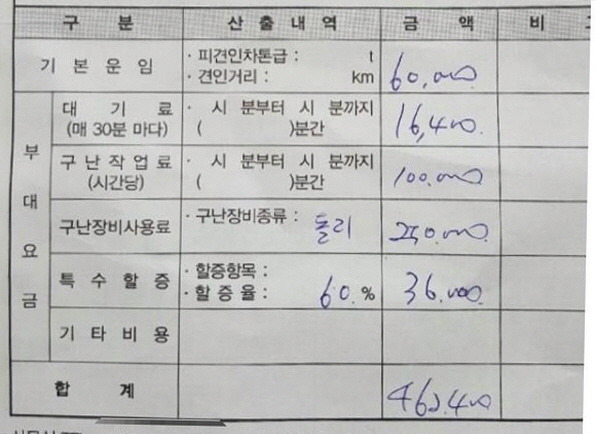 구 분 산 출 내 역 금 액 비
기 본 운 임 · 피견인차톤급 : t
· 견인거리 : km 60,000
부 대 요 금
대 기 료
(매 30분 마다) · 시 분부터 시 분까지
( )분간 16,400
구 난 작 업 료
(시간당) · 시 분부터 시 분까지
( )분간 100,000
구난장비사용료 · 구난장비종류 : 돌리 250,000
특 수 할 증 · 할증항목 :
· 할 증 율 : 60 % 36,000
기 타 비 용
합 계 462,400